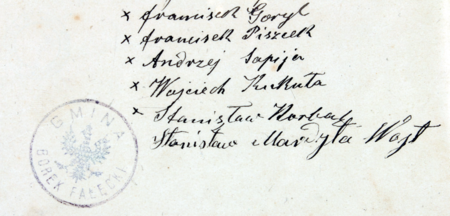 × Franciszek Goryl
× Franciszek Piszczek
× Andrzej Sapija
× Wojciech Kukuła
× Stanisław
Stanisław Mardyła Wójt
GMINA
BOREK FAŁĘCKI